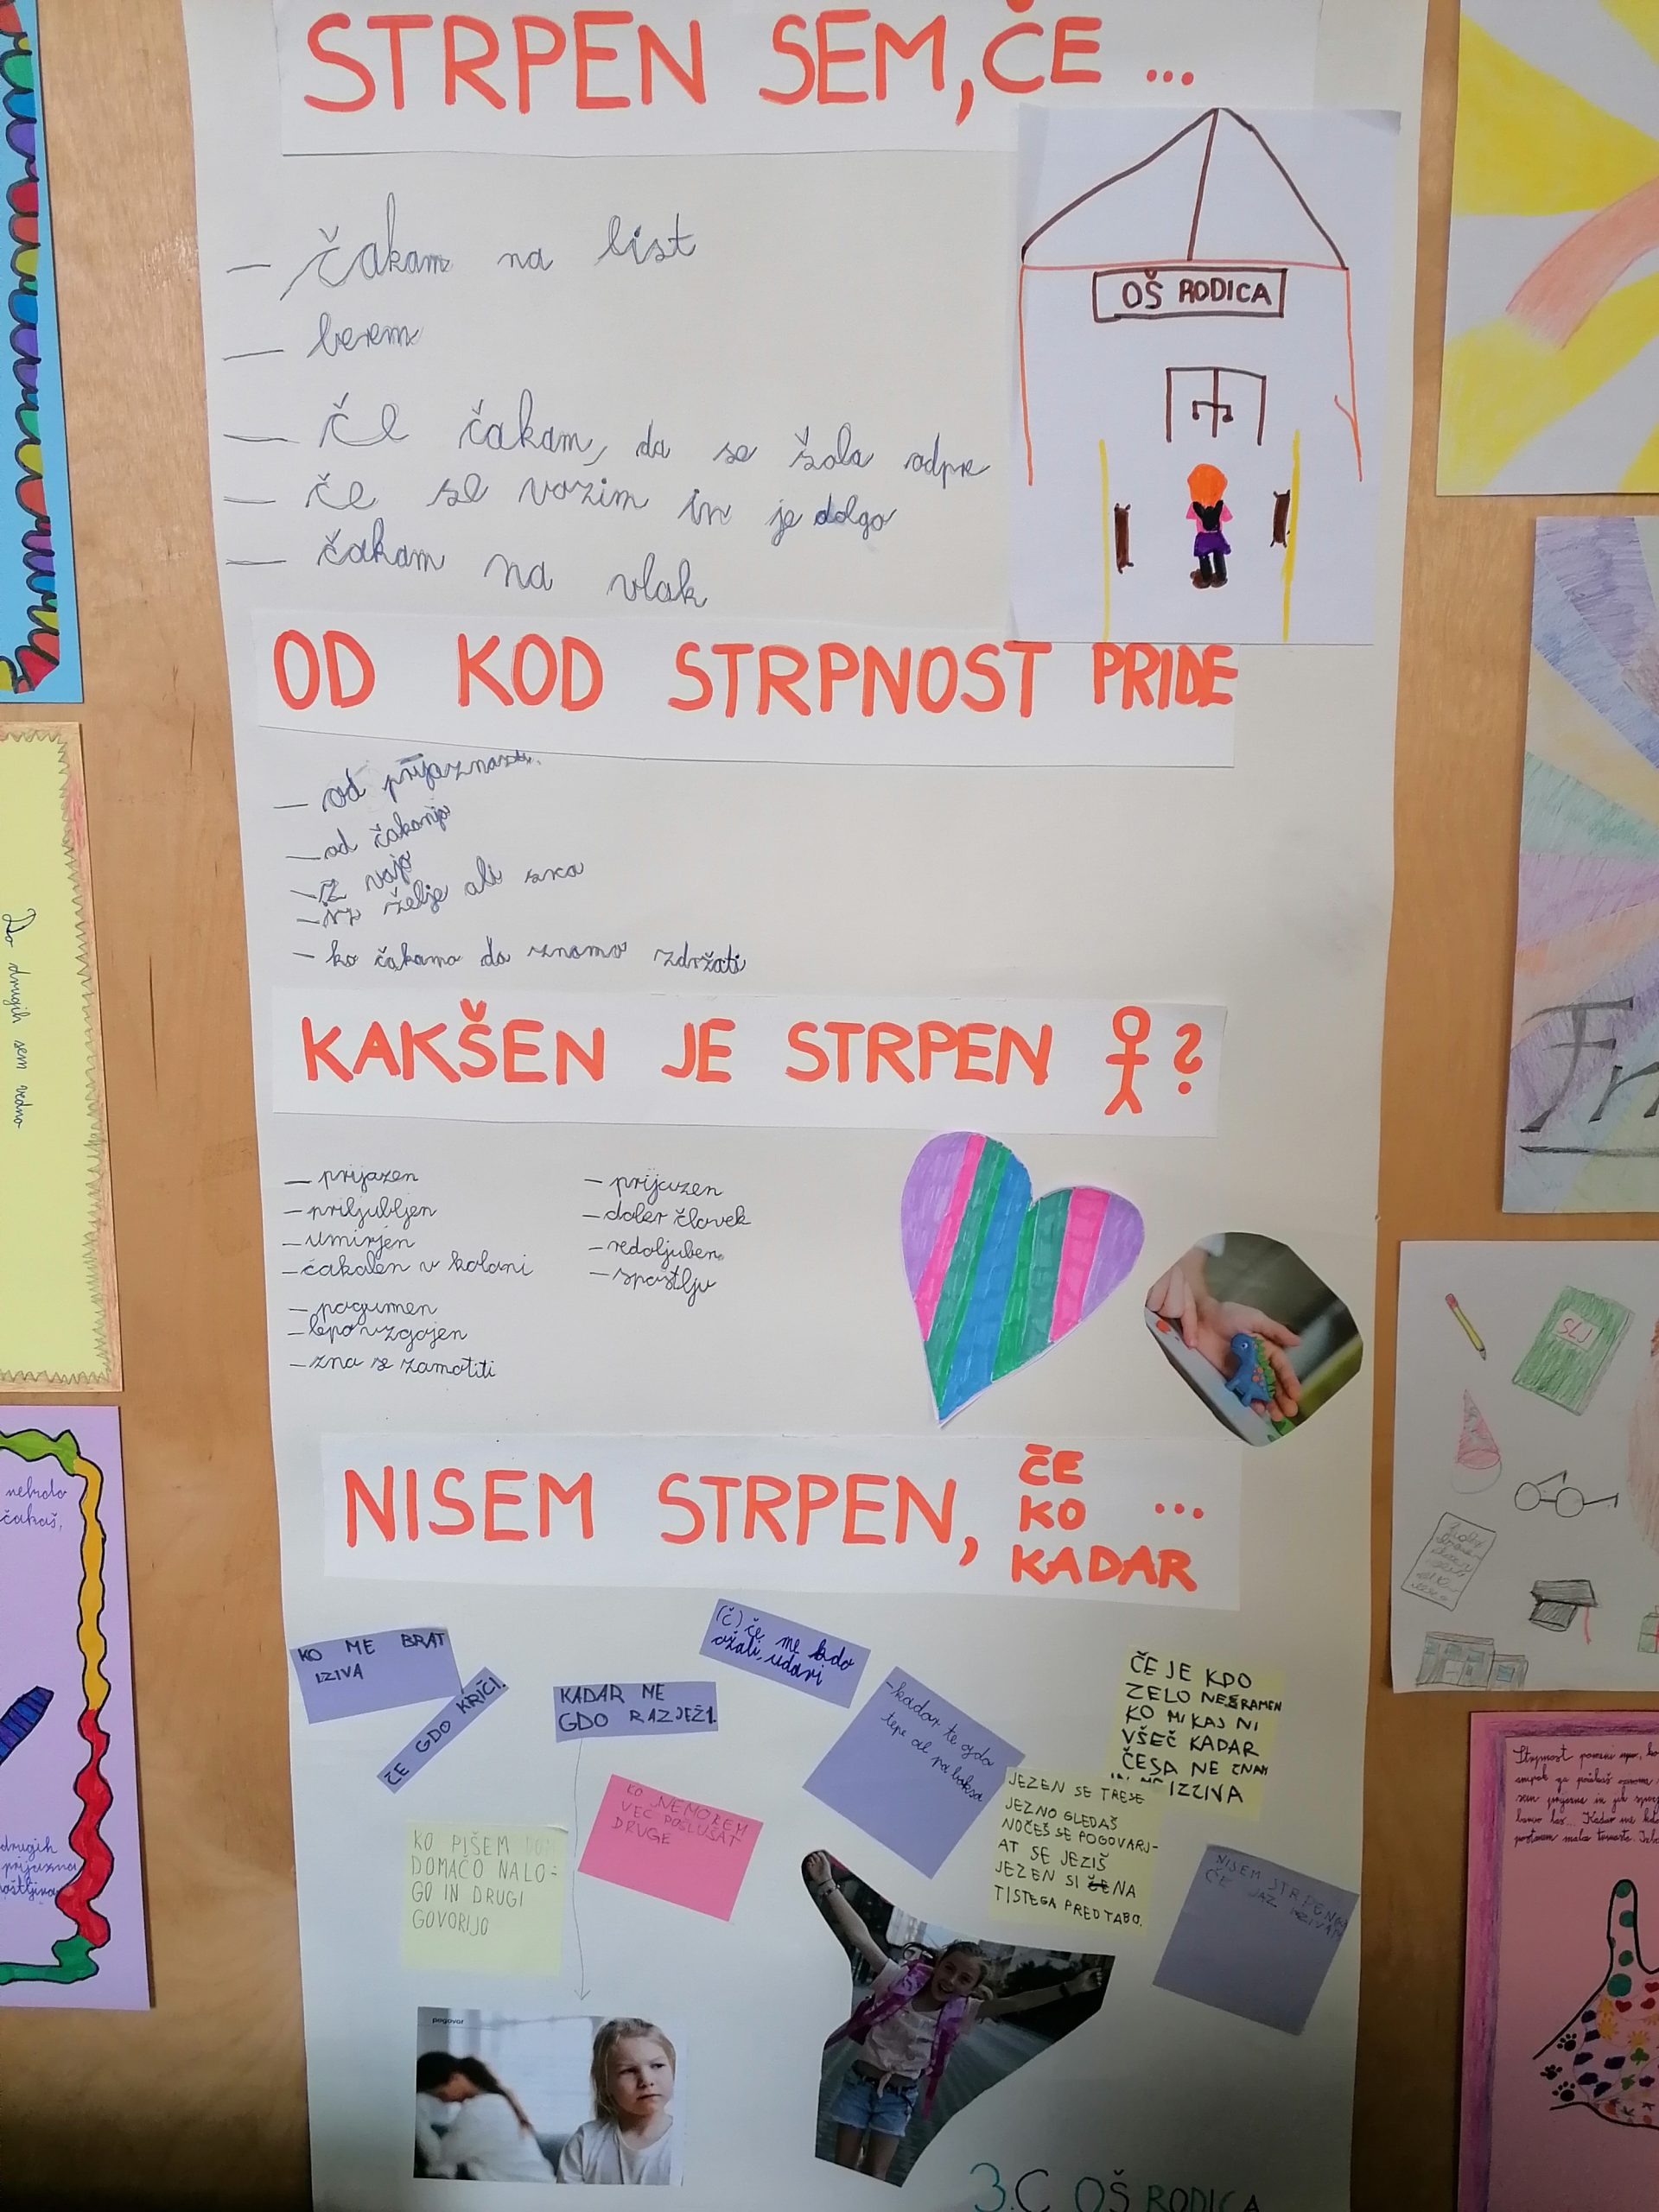 STRPEN SEM, ČE ...
— čakam na list
— berem
— če čakam, da se šola odpre
— če se vozim in je dolgo
— čakam na vlak
OŠ RODICA
OD KOD STRPNOST PRIDE
— od prijaznosti.
— od čakanja
— iz vajo
— iz želje ali srca
— ko čakamo da znamo zdržati
KAKŠEN JE STRPEN ?
— prijazen
— priljubljen
— umirjen
— čakalen v koloni
— pogumen
— lepo vzgojen
— zna se zamotiti
— prijazen
— dober človek
— redoljuben
— spoštljiv
NISEM STRPEN, ČE KO KADAR ...
KO ME BRAT
IZIVA
ČE GDO KRIČI.
KADAR ME
GDO RAZJEZI.
(Č) če me kdo
užali, udari
— kadar te gdo
tepe al pa boksa
ČE JE KDO
ZELO NESRAMEN
KO MI KAJ NI
VŠEČ KADAR
ČESA NE ZNAM
IN ME IZZIVA
KO PIŠEM
DOMAČO NALO-
GO IN DRUGI
GOVORIJO
KO NEMOREM
VEČ POSLUŠAT
DRUGE
JEZEN SE TRESE
JEZNO GLEDAŠ
NOČEŠ SE POGOVARJ-
AT SE JEZIŠ
JEZEN SI NA
TISTEGA PRED TABO.
NISEM STRPEN
ČE JAZ IZIVAM
pogovor
3.C OŠ RODICA
Do drugih sem vedno
nekdo
čakaš,
drugih
prijazna
SLJ
Fr